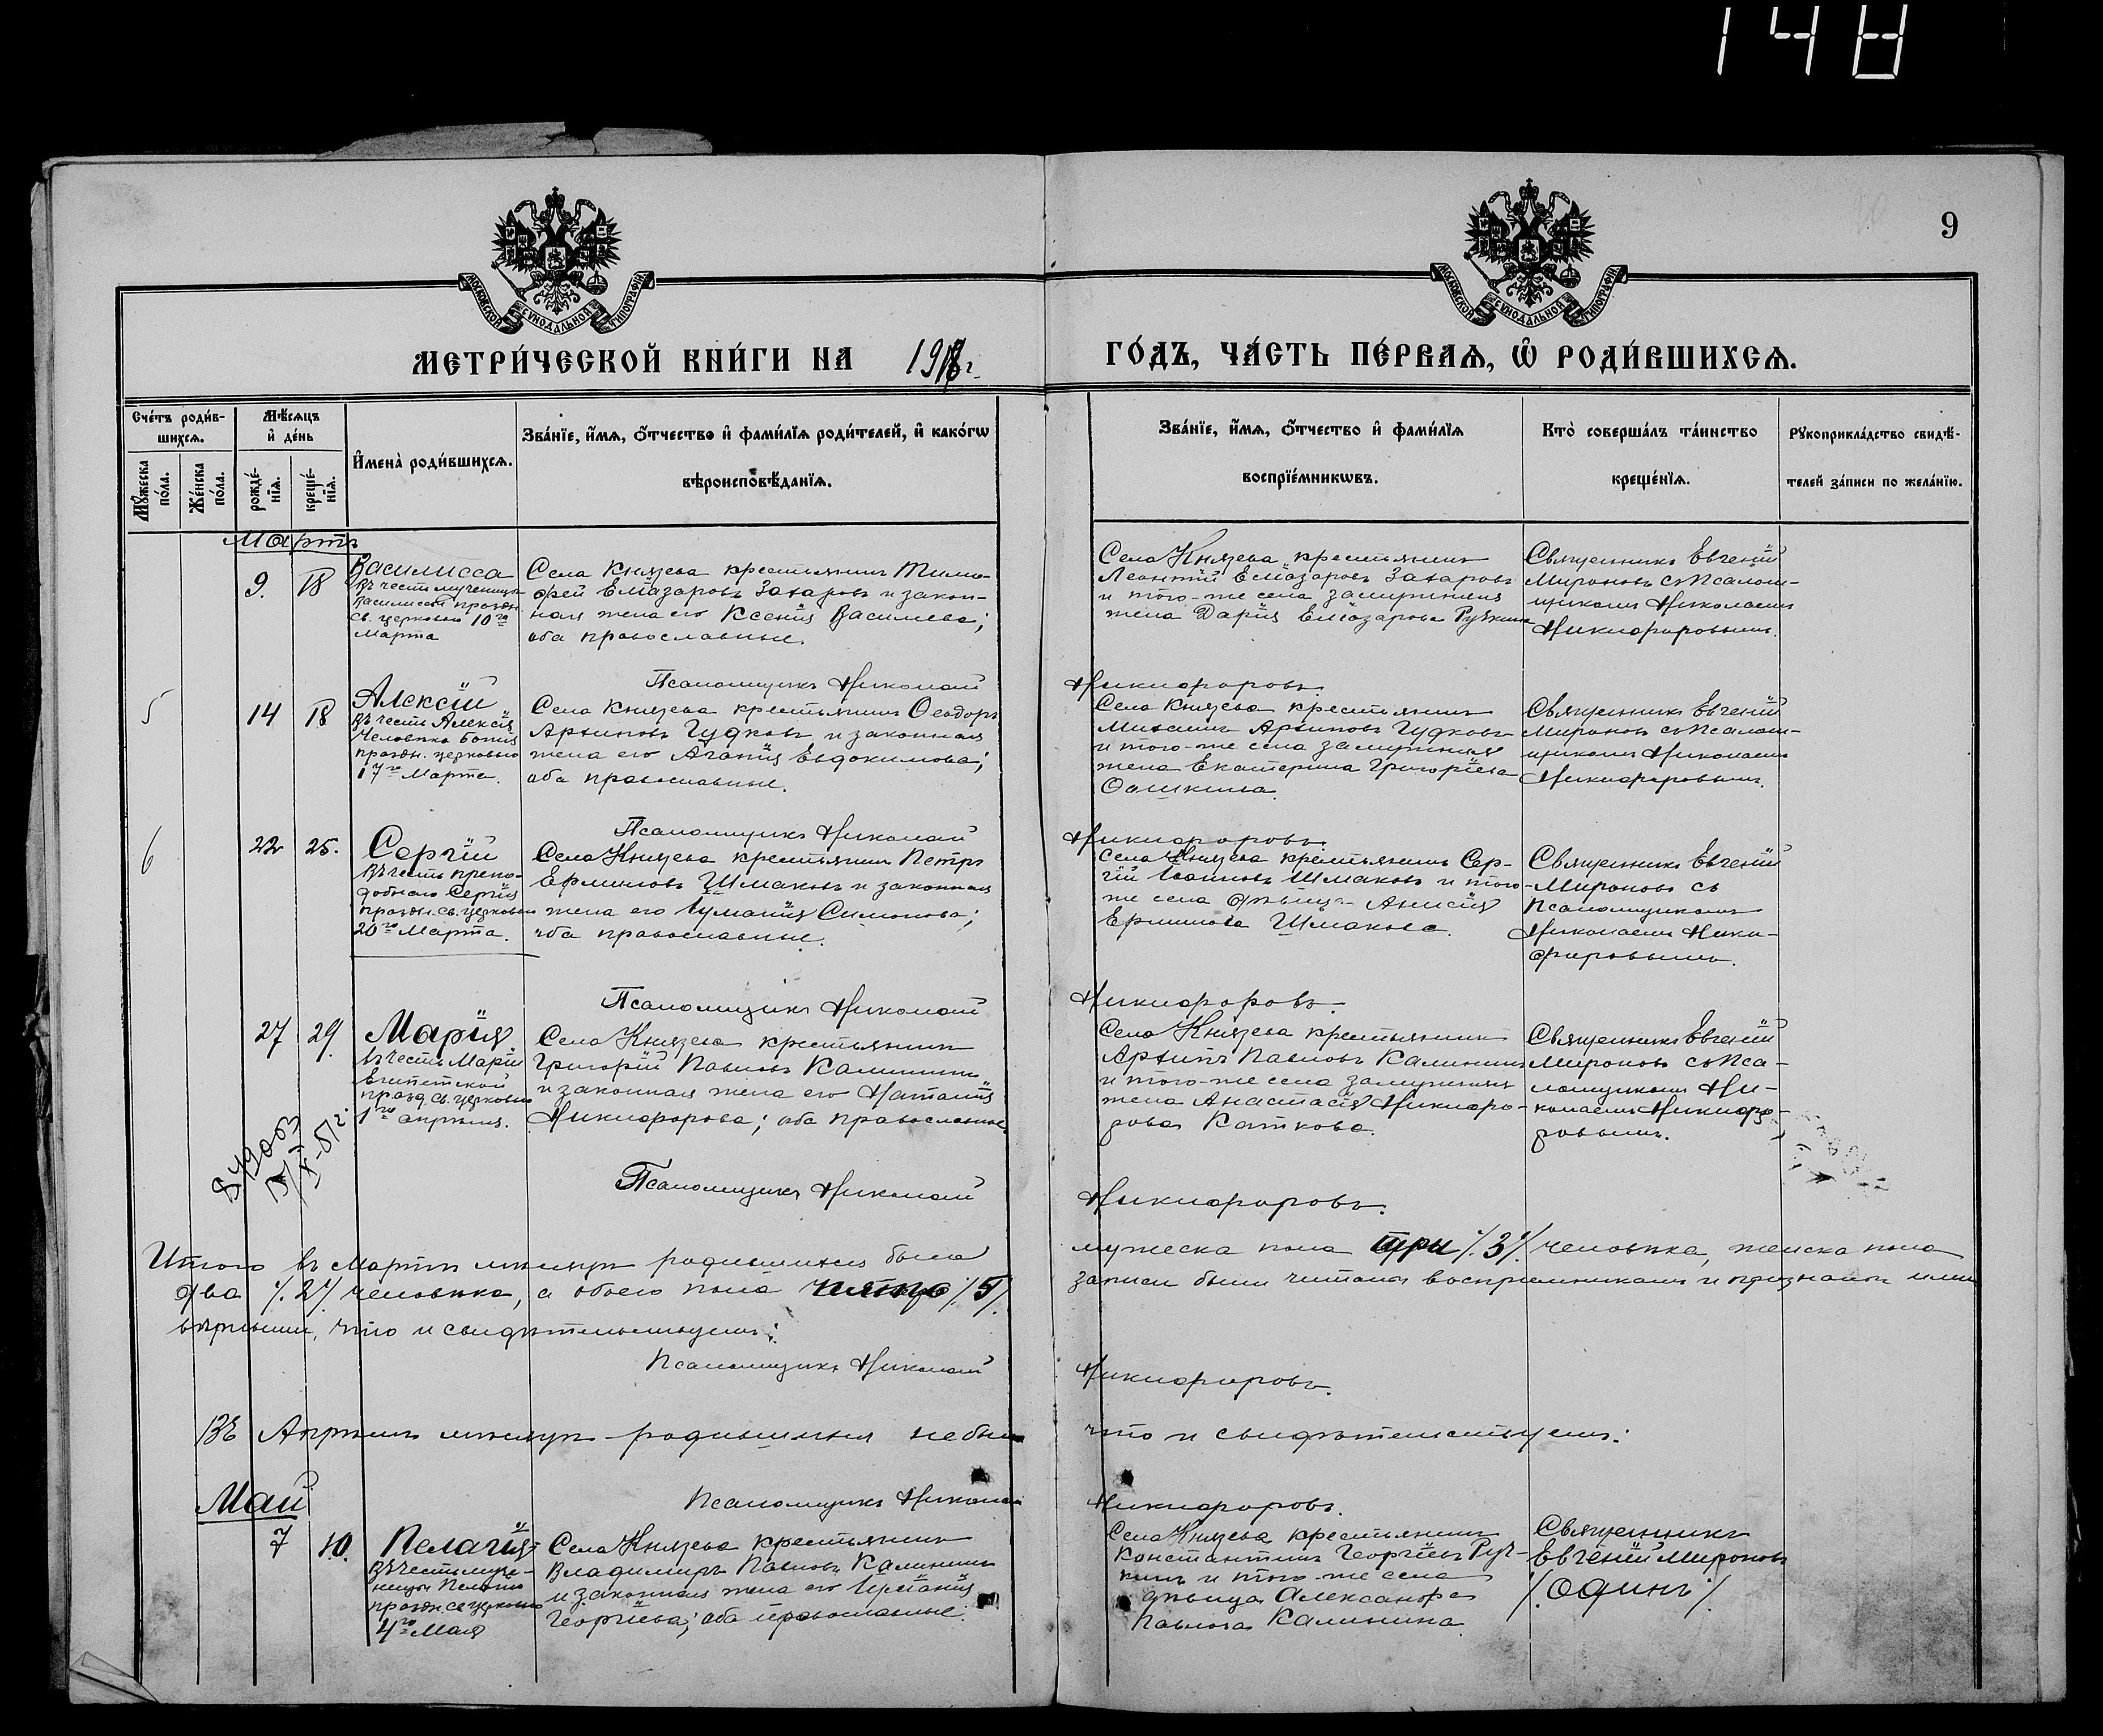 148
9
МОСКОВСКОЙ СѴНОДАЛЬНОЙ ТИПОГРАФІИ
МОСКОВСКОЙ СѴНОДАЛЬНОЙ ТИПОГРАФІИ
МЕТРИ́ЧЕСКОЙ КНИ́ГИ НА 191 г. ГО́ДЪ, ЧА́СТЬ ПЕ́РВАѦ, Ѡ҆ РОДИ́ВШИХСѦ.
Сче́тъ роди́в-
шихсѧ.
Му́жеска по́ла.
Же́нска по́ла.
Мѣ́сѧцъ
и҆ де́нь
рожде́-
нїѧ.
креще́-
нїѧ.
И҆мена̀ роди́вшихсѧ.
Зва́нїе, и҆́мѧ, ѻ҆́тчество и҆ фами́лїѧ роди́телей, и҆ како́гѡ
вѣроисповѣ́данїѧ.
Зва́нїе, и҆́мѧ, ѻ҆́тчество и҆ фами́лїѧ
воспрїе́мникѡвъ.
Кто̀ соверша́лъ та́инство
креще́нїѧ.
Рꙋкоприкла́дство свидѣ́-
телей за́писи по жела́нїю.
Мартъ
9. 18
Василисса
Въ честь мученицы
Василиссы праздн.
св. церковью 10го
Марта
Села Князева крестьянинъ Тимо-
фей Еліазаровъ Захаровъ и закон-
ная жена его Ксенія Васильева;
оба православные.
Села Князева крестьянинъ
Леонтій Еліазаровъ Захаровъ
и того-же села замужняя
жена Дарія Еліазарова
Священникъ Евгеній
Мироновъ съ Псалом-
щикомъ Николаемъ
Никифоровымъ.
Псаломщикъ Николай Никифоровъ.
5 14 18
Алексій
Въ честь Алексія
Человѣка Божія
праздн. церковью
17го Марта.
Села Князева крестьянинъ Ѳеодоръ
Архиповъ Гудковъ и законная
жена его Агапія Евдокимова;
оба православные.
Села Князева крестьянинъ
Михаилъ Архиповъ Гудковъ
и того-же села замужняя
жена Екатерина Григоріева
Священникъ Евгеній
Мироновъ съ Псалом-
щикомъ Николаемъ
Никифоровымъ.
Псаломщикъ Николай Никифоровъ.
6 22 25.
Сергій
Въ честь препо-
добнаго Сергія
праздн. св. церковью
20го Марта.
Села Князева крестьянинъ Петръ
Ермиловъ Шмаковъ и законная
жена его Іуліанія Симонова;
оба православные.
Села Князева крестьянинъ Сер-
гій Іоанновъ Шмаковъ и того-
же села дѣвица Анисія
Ермилова Шмакова.
Священникъ Евгеній
Мироновъ съ
Псаломщикомъ
Николаемъ Ники-
форовымъ.
Псаломщикъ Николай Никифоровъ.
27 29.
Марія
въ честь Маріи
Египетской
празд. св. церковью
1го апрѣля.
Села Князева крестьянинъ
Григорій Павловъ Калининъ
и законная жена его Наталія
Никифорова; оба православные.
Села Князева крестьянинъ
Архипъ Павловъ Калининъ
и того-же села замужняя
жена Анастасія Никифо-
рова Каткова.
Священникъ Евгеній
Мироновъ съ Пса-
ломщикомъ Ни-
колаемъ Никифо-
ровымъ.
Псаломщикъ Николай Никифоровъ.
Итого въ Мартѣ мѣсяцѣ родившихся было мужеска пола три /.3./ человѣка, женска пола
два /.2./ человѣка, а обоего пола пять /.5./ записи были читаны воспріемникамъ и признаны ими
вѣрными, что и свидѣтельствуемъ:
Псаломщикъ Николай Никифоровъ.
Въ Апрѣлѣ мѣсяцѣ родившихся не было что и свидѣтельствуемъ:
Псаломщикъ Николай Никифоровъ.
Май
7 10.
Пелагія
Въ честь муче-
ницы Пелагіи
праздн. св. церковью
4го Мая
Села Князева крестьянинъ
Владимиръ Павловъ Калининъ
и законная жена его
Георгіева; оба православные.
Села Князева крестьянинъ
Константинъ Георгіевъ Руч-
кинъ и того-же села
дѣвица Александра
Павлова Калинина.
Священникъ
Евгеній Мироновъ
/.одинъ./